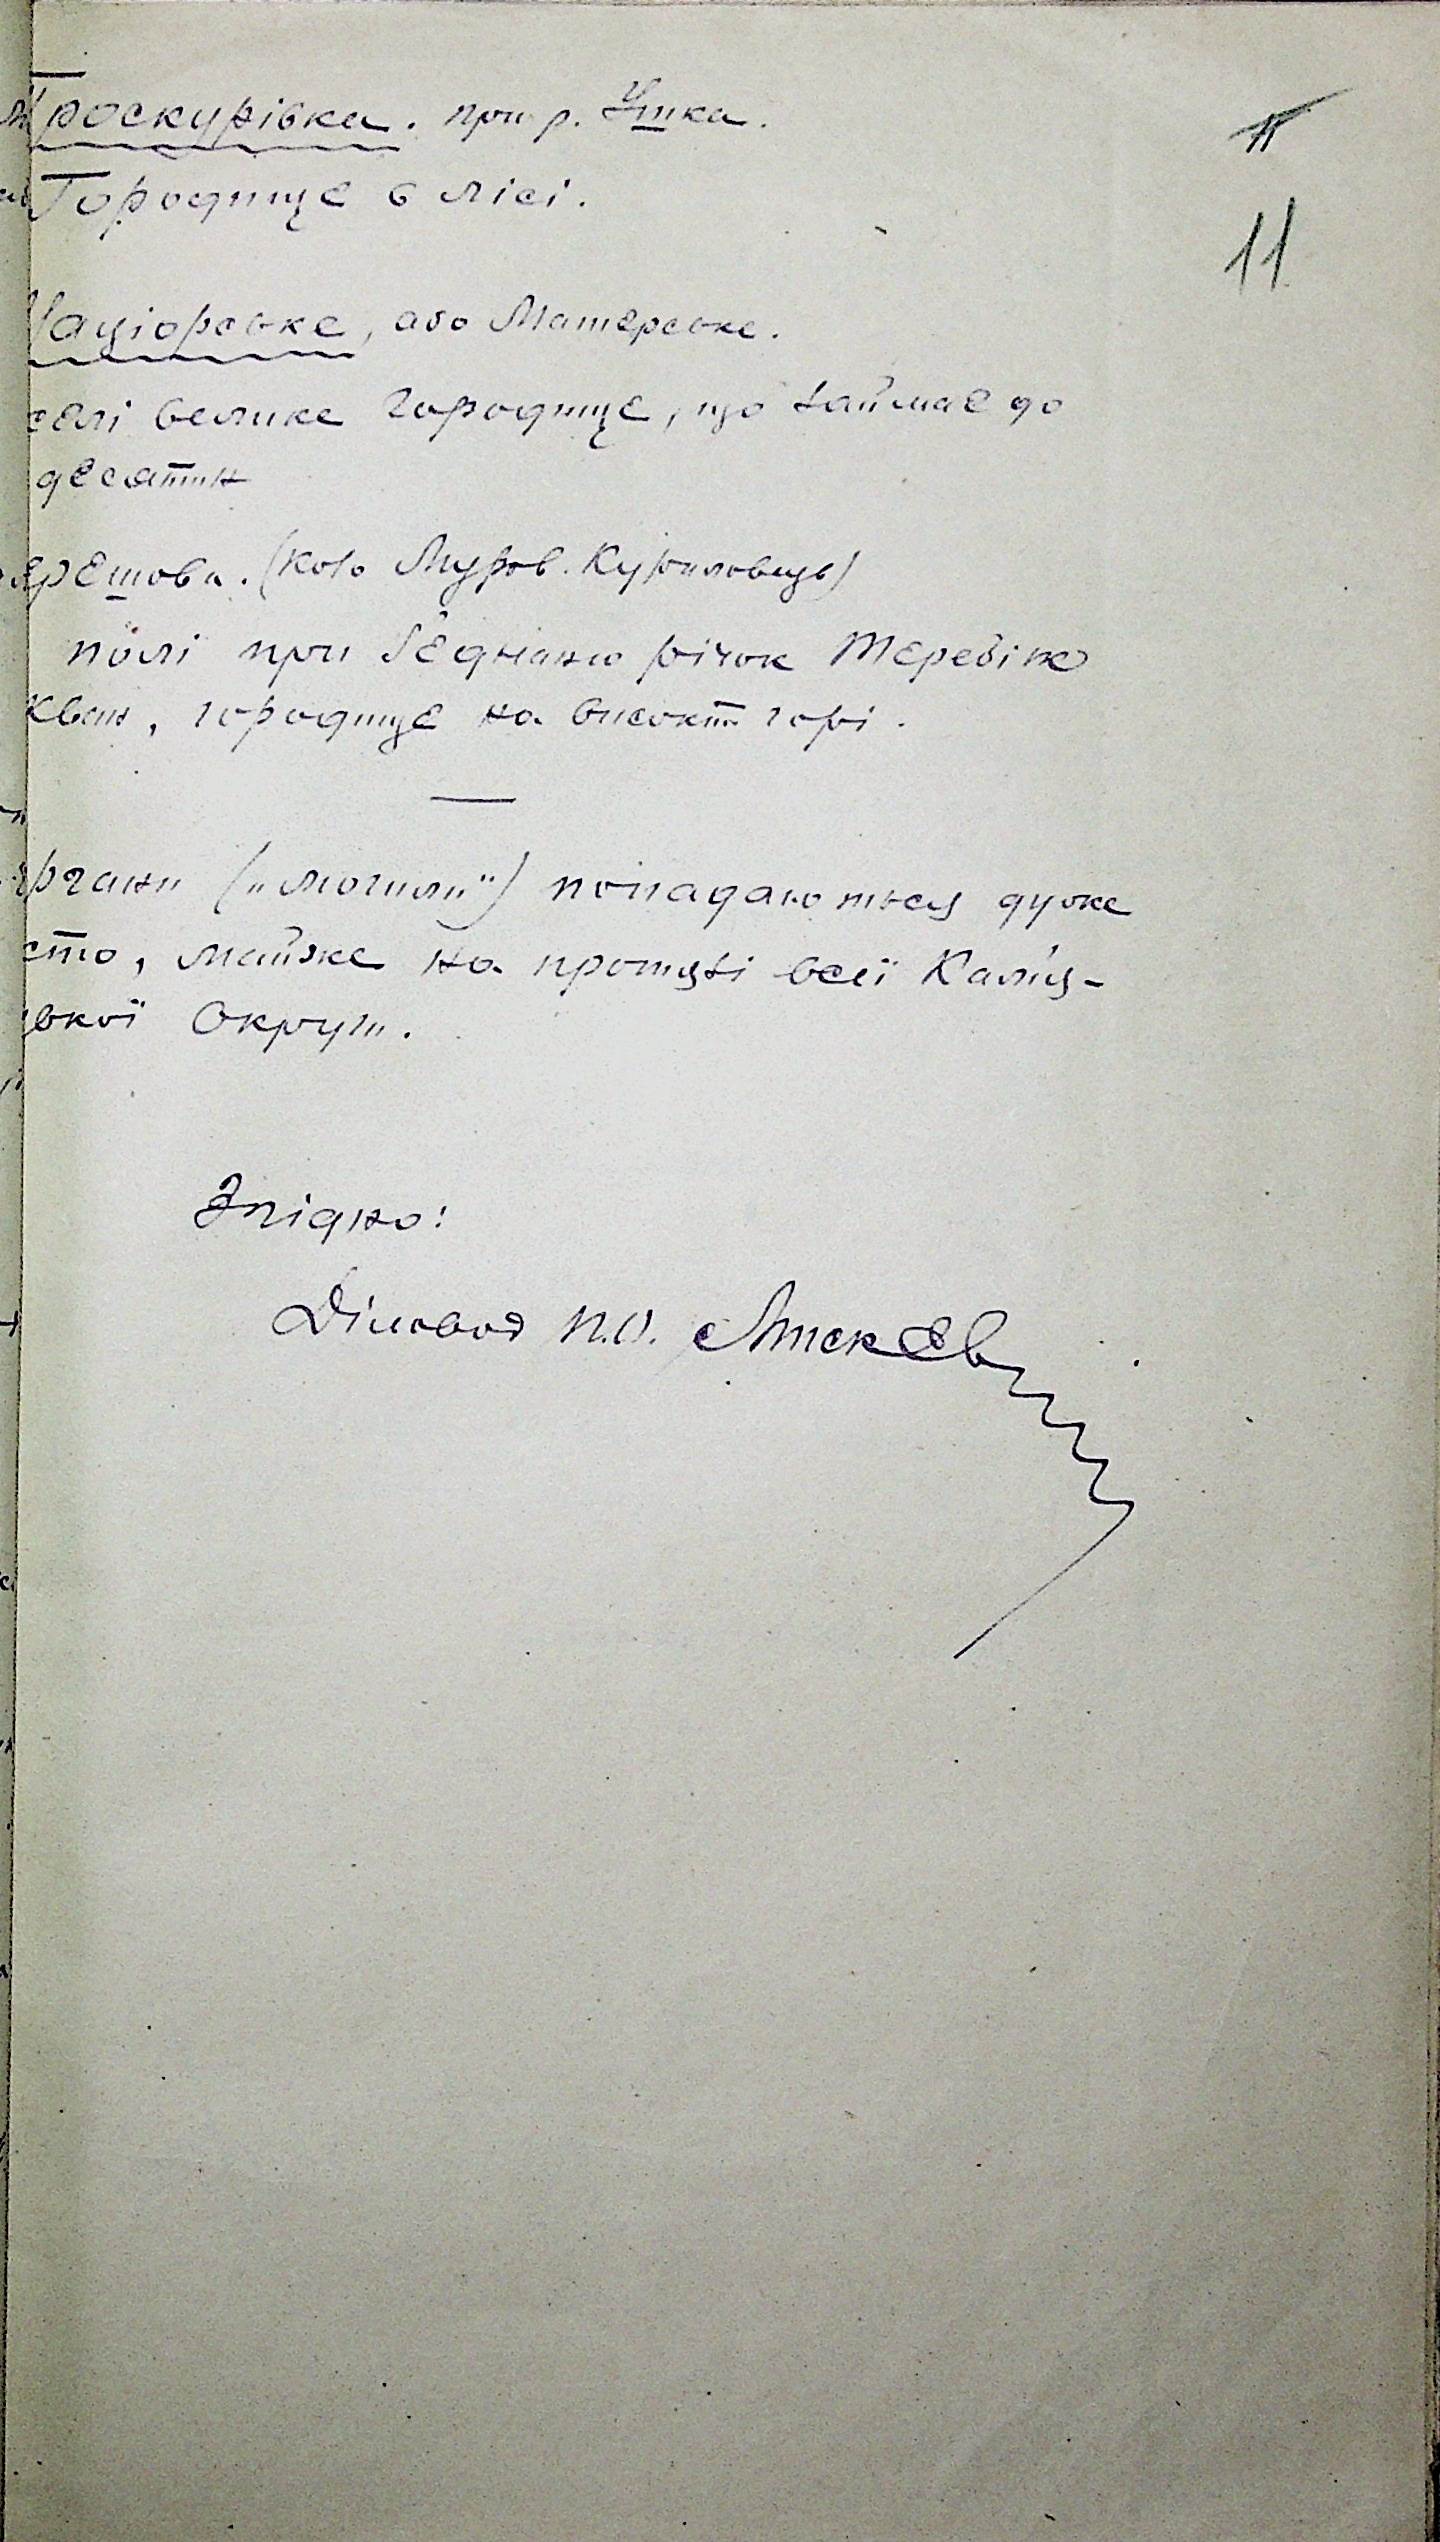 Проскурівка. при р. Ушка.
11
Городище в лісі.
Націорське, або Матерське.
селі велике городище, що займає до
десятин
(коло Муров. Куриловець)
полі при з'єднанню річок Теребіж
Кван, городище на високій горі.
ргани („могили") попадаються дуже
сто, майже на протязі всеї Камʼя-
ької Округи.
Згідно:
Діловод П.О.